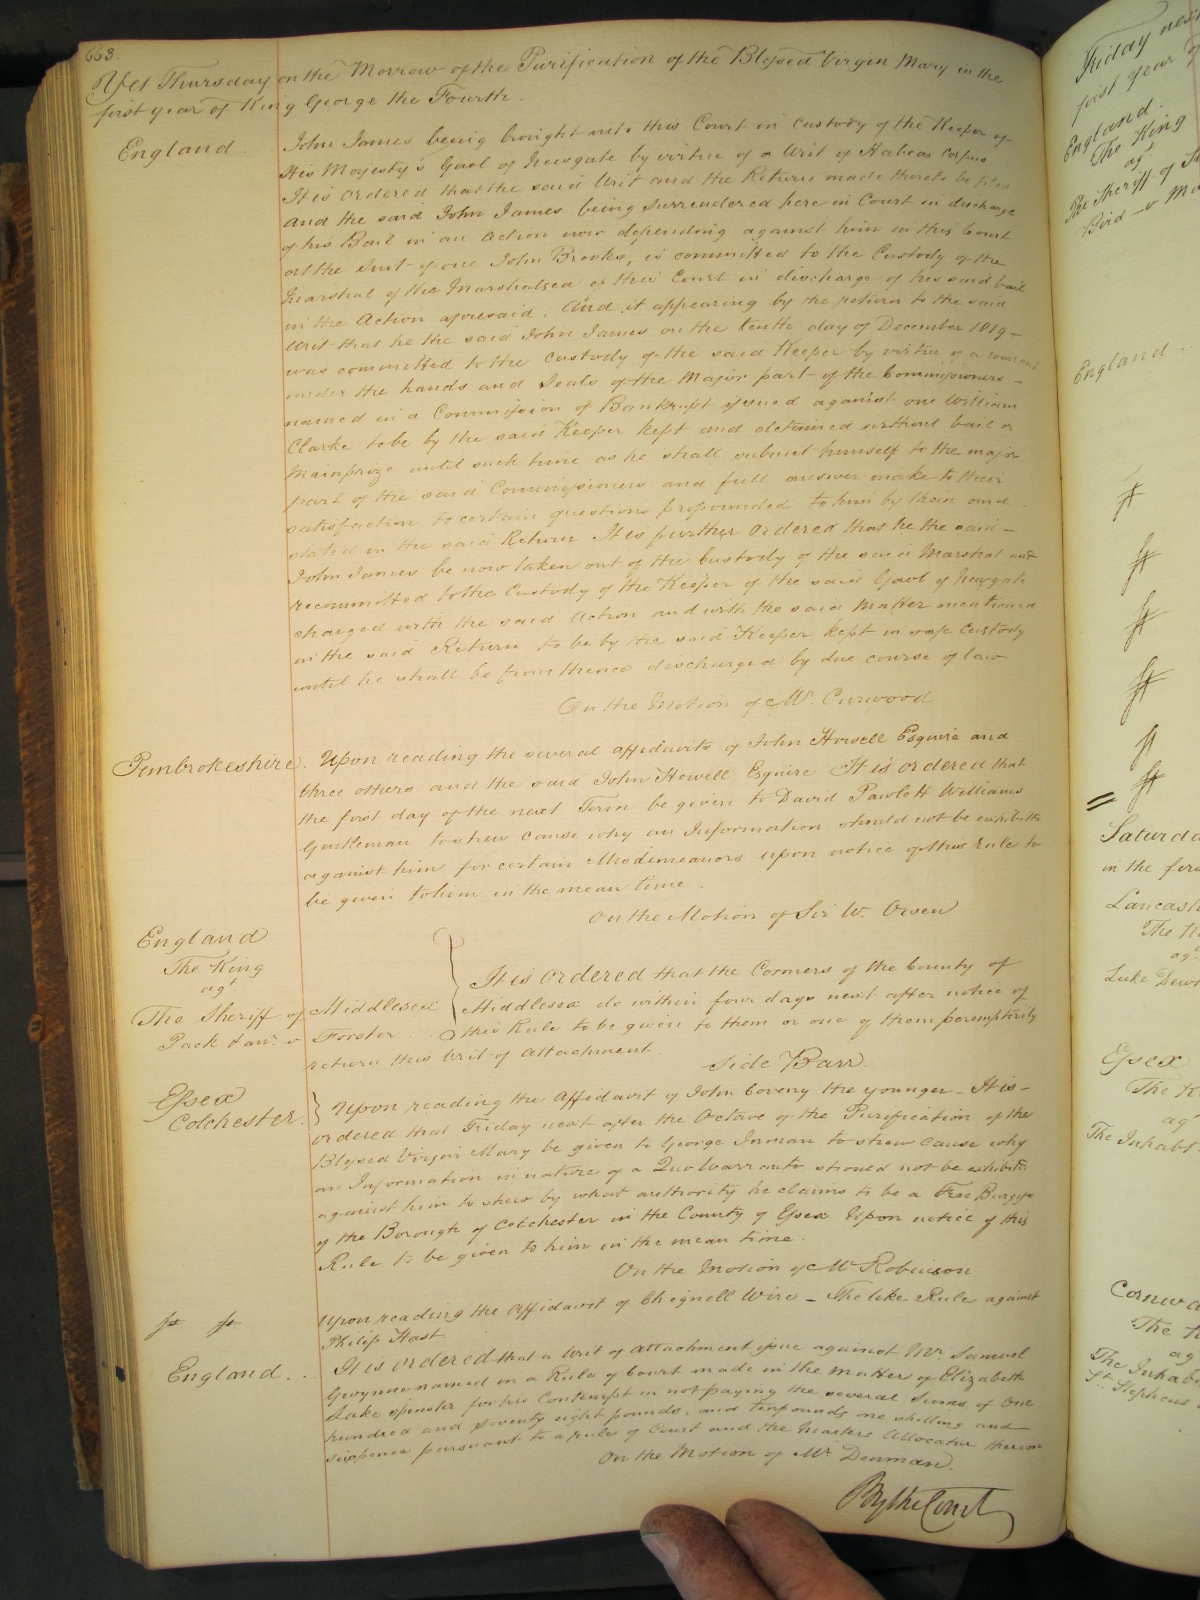 663.
Yet Thursday on the Morrow of the Purification of the Blessed Virgin Mary in the
first year of King George the Fourth.
England. John James being brought into this Court in Custody of the Keeper of
His Majesty's Gaol of Newgate by virtue of a Writ of Habeas Corpus
It is ordered that the said Writ and the Return made thereto be filed
And the said John James being surrendered here in Court in discharge
of his Bail in an Action now depending against him in this Court
at the Suit of one John Brooks, is committed to the Custody of the
Marshal of the Marshalsea of this Court in discharge of his said bail
in the Action aforesaid. And it appearing by the return to the said
Writ that he the said John James on the tenth day of December 1819
was committed to the Custody of the said Keeper by virtue of a warrant
under the hands and Seals of the Major part of the Commissioners
named in a Commission of Bankrupt issued against one William
Clarke to be by the said Keeper kept and detained without bail or
Mainprize until such time as he shall submit himself to the major
part of the said Commissioners and full answer make to their
satisfaction to certain questions propounded to him by them and
stated in the said Return It is further ordered that he the said
John James be now taken out of the Custody of the said Marshal and
recommitted to the Custody of the Keeper of the said Gaol of Newgate
charged with the said Action and with the said Matter mentioned
in the said Return to be by the said Keeper kept in safe Custody
until he shall be from thence discharged by due course of law
On the Motion of Mr. Curwood
Pembrokeshire. Upon reading the several affidavits of John Howell Esquire and
three others and the said John Howell Esquire It is ordered that
the first day of the next Term be given to David Pawlett Williams
Gentleman to shew cause why an Information should not be exhibited
against him for certain Misdemeanors upon notice of this rule to
be given to him in the mean time.
On the Motion of Sir W. Owen
England
The King
agt.
The Sheriff of Middlesex
Pack v Forster
It is ordered that the Coroners of the County of
Middlesex do within four days next after notice of
this Rule to be given to them or one of them peremptorily
return this Writ of attachment.
Side Barr
Essex
Colchester. Upon reading the Affidavit of John Coveny the younger It is
ordered that Friday next after the Octave of the Purification of the
Blessed Virgin Mary be given to George Inman to shew cause why
an Information in nature of a Quo Warranto should not be exhibited
against him to shew by what authority he claims to be a Free Burgess
of the Borough of Colchester in the County of Essex Upon notice of this
Rule to be given to him in the mean time.
On the Motion of Mr Robinson
Upon reading the Affidavit of Chignell Wire – The like Rule against
Philip Hast
England. It is ordered that a Writ of attachment issue against Mr. Samuel
Gwynne named in a Rule of Court made in the matter of Elizabeth
Lake spinster for his Contempt in not paying the several Sums of One
hundred and seventy eight pounds, and ten pounds one shilling and
sixpence pursuant to a rule of Court and the Masters Allocatur thereon
On the Motion of Mr Denman.
By the Court
Friday next
first year of
England
The King
agt
The Sheriff of
Bird v
England
Saturda
in the firs
Lancash
The K
agt
Luke Dew
Essex
The K
agt
The Inhabt
Cornwa
The K
ag
The Inhabi
St. Stephens